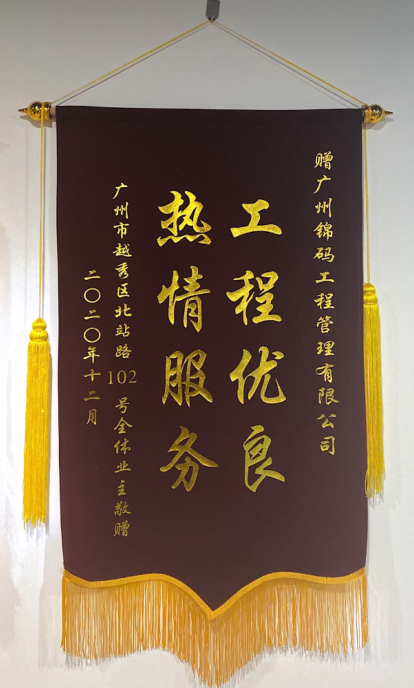 赠广州锦码工程管理有限公司
工程优良
热情服务
广州市越秀区北站路102号全体业主敬赠
二〇二〇年十二月